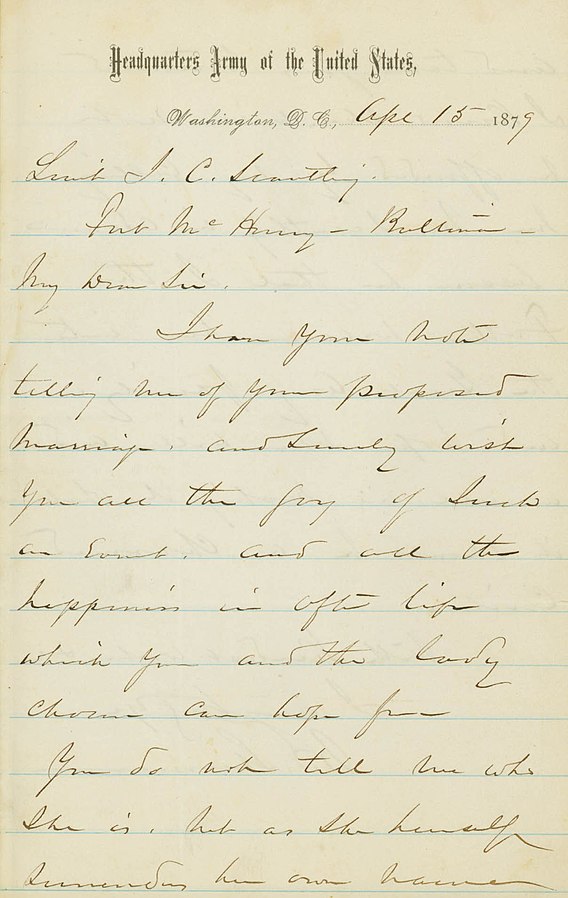 Headquarters Army of the United States,
Washington, D.C., Apl 15 1879
Lieut J. C. Scantling.
Fort McHenry - Baltimore -
My Dear Sir.
I have your note
telling me of your proposed
marriage. and surely wish
you all the joy of such
an event. and all the
happiness in after life
which you and the lady
chosen can hope for
You do not tell me who
she is, but as she herself
surrenders her own name